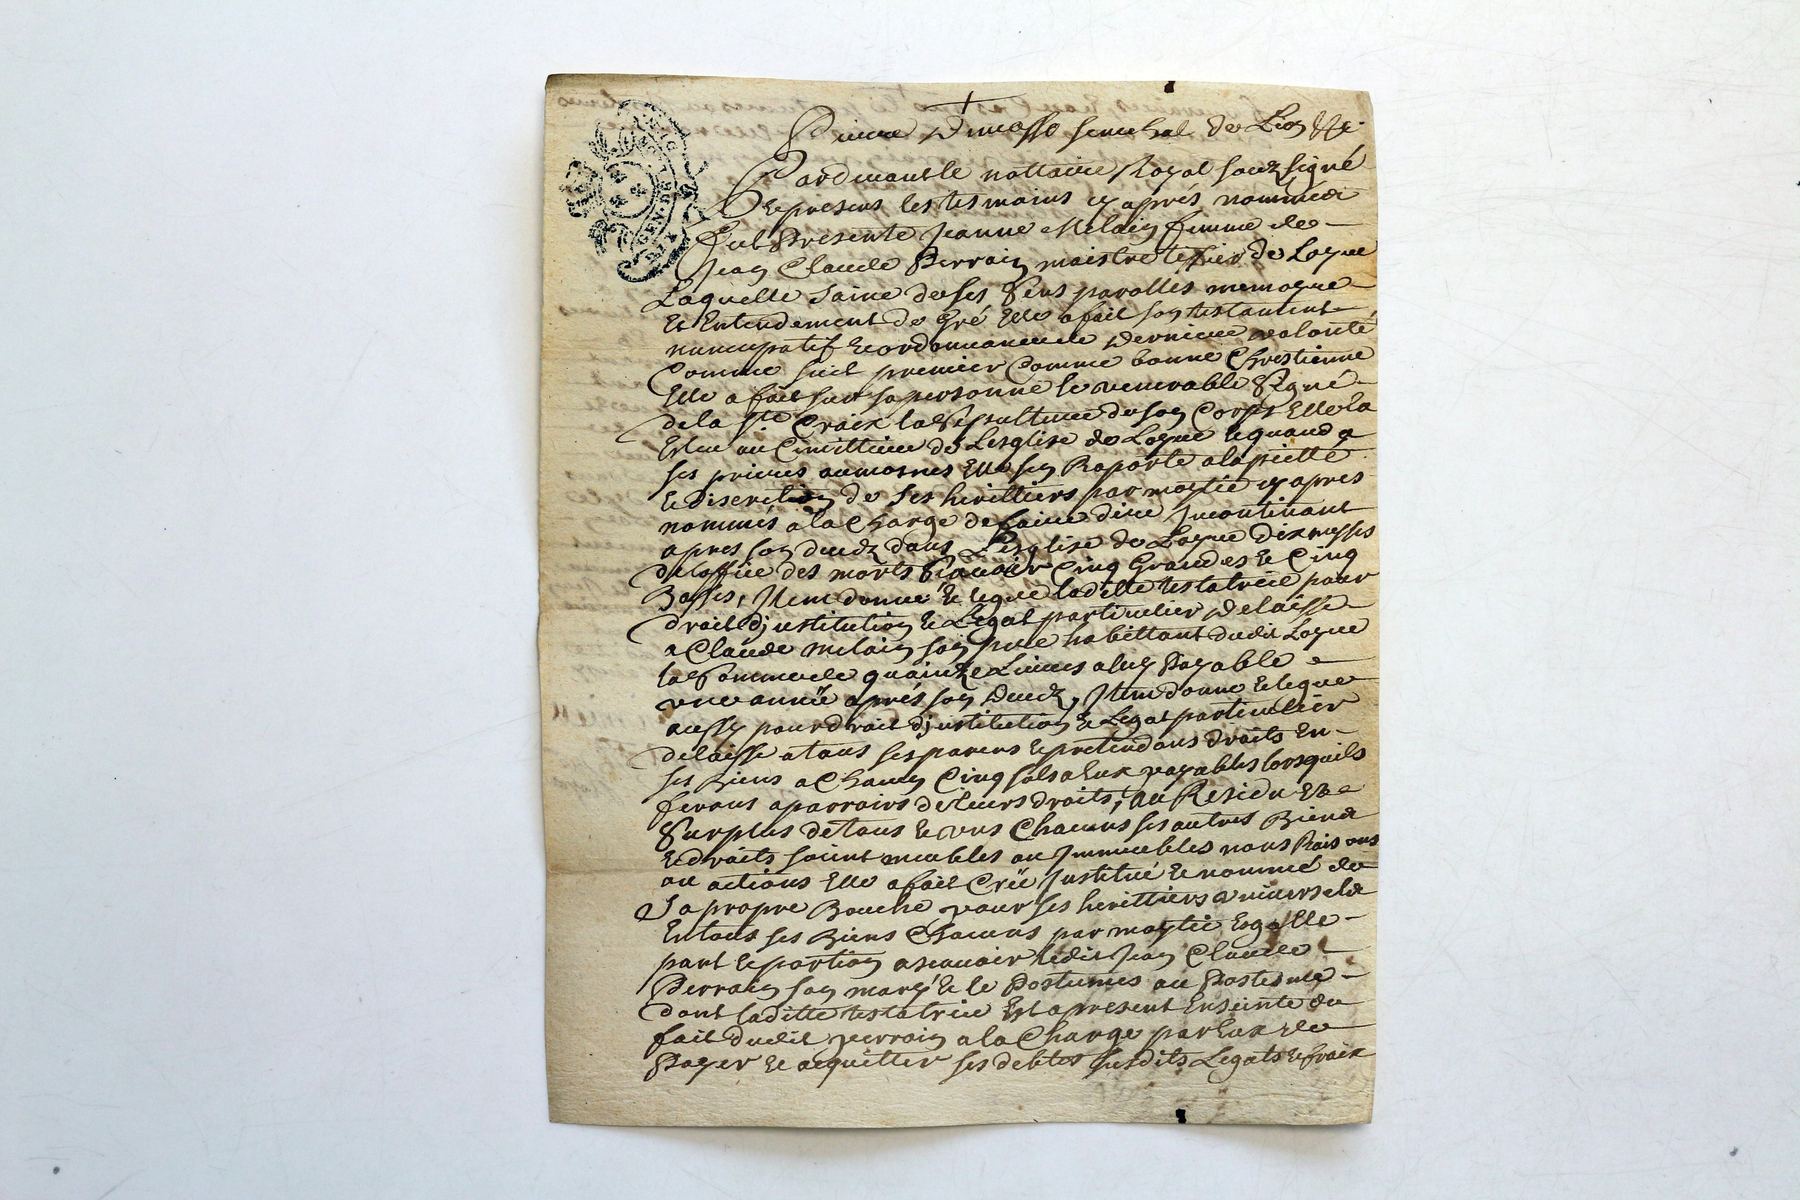 GEN DE LYON
senechal de Lion
Pardevant le nottaire Royal soubzsigné
Et presens les tesmoins cy après nommés
fut Presente Jeanne Melain femme de
Jean Claude Perrain maistre texier de Loyse
Laquelle saine de ses sens parolles memoyre
Et Entendement de gré Elle a fait son testament
nuncupatif et ordonnance de derniere volonté
Comme suit premier Comme bonne Chrestienne
Elle a fait sur sa personne le venerable Signé
de la Ste Croix la Sepulture de son Corps Elle la
Eslue au Cimittiere de Lesglise de Loyse Et quand a
ses prieres aumosnes Elle sen Raporte a la pietté
Et discretion de ses heritiers par moytié cy apres
nommés a la Charge de faire dire Incontinant
apres son decedz dans Lesglise de Loyse dix messes
de loffice des morts Scavoir Cinq Grandes et Cinq
Basses, Item donne et legue laditte testatrice pour
droit dinstitution et Legat particulier delaisse
a Claude Melain son pere habittant dudit Loyse
la Somme de quainze Livres a luy Payable
une année après son decedz, Item donne et legue
aussy pour droit dinstitution et Legat particulier
delaisse a tous ses parens et pretendans droits En
ses biens a Chacun Cinq sols a Eux payables lorsquils
feront aparroirs de leurs droits, au Residu Et
Surplus de tous et uns Chacuns ses autres Biens
Et droits soient meubles ou Immeubles noms Raisons
ou actions Elle a fait Creé Institué et nommé de
Sa propre Bouche pour ses herittiers universels
En tous ses Biens Chacuns par moytié Esgalle
part et portion a scavoir ledit Jean Claude
Perrain son mary Et le Postumes ou Postume
dont laditte testatrice Est a present Enseinte du
fait dudit perrain a la Charge par Eux de
Payer Et acquitter ses debtes susdits Legats Et fraix